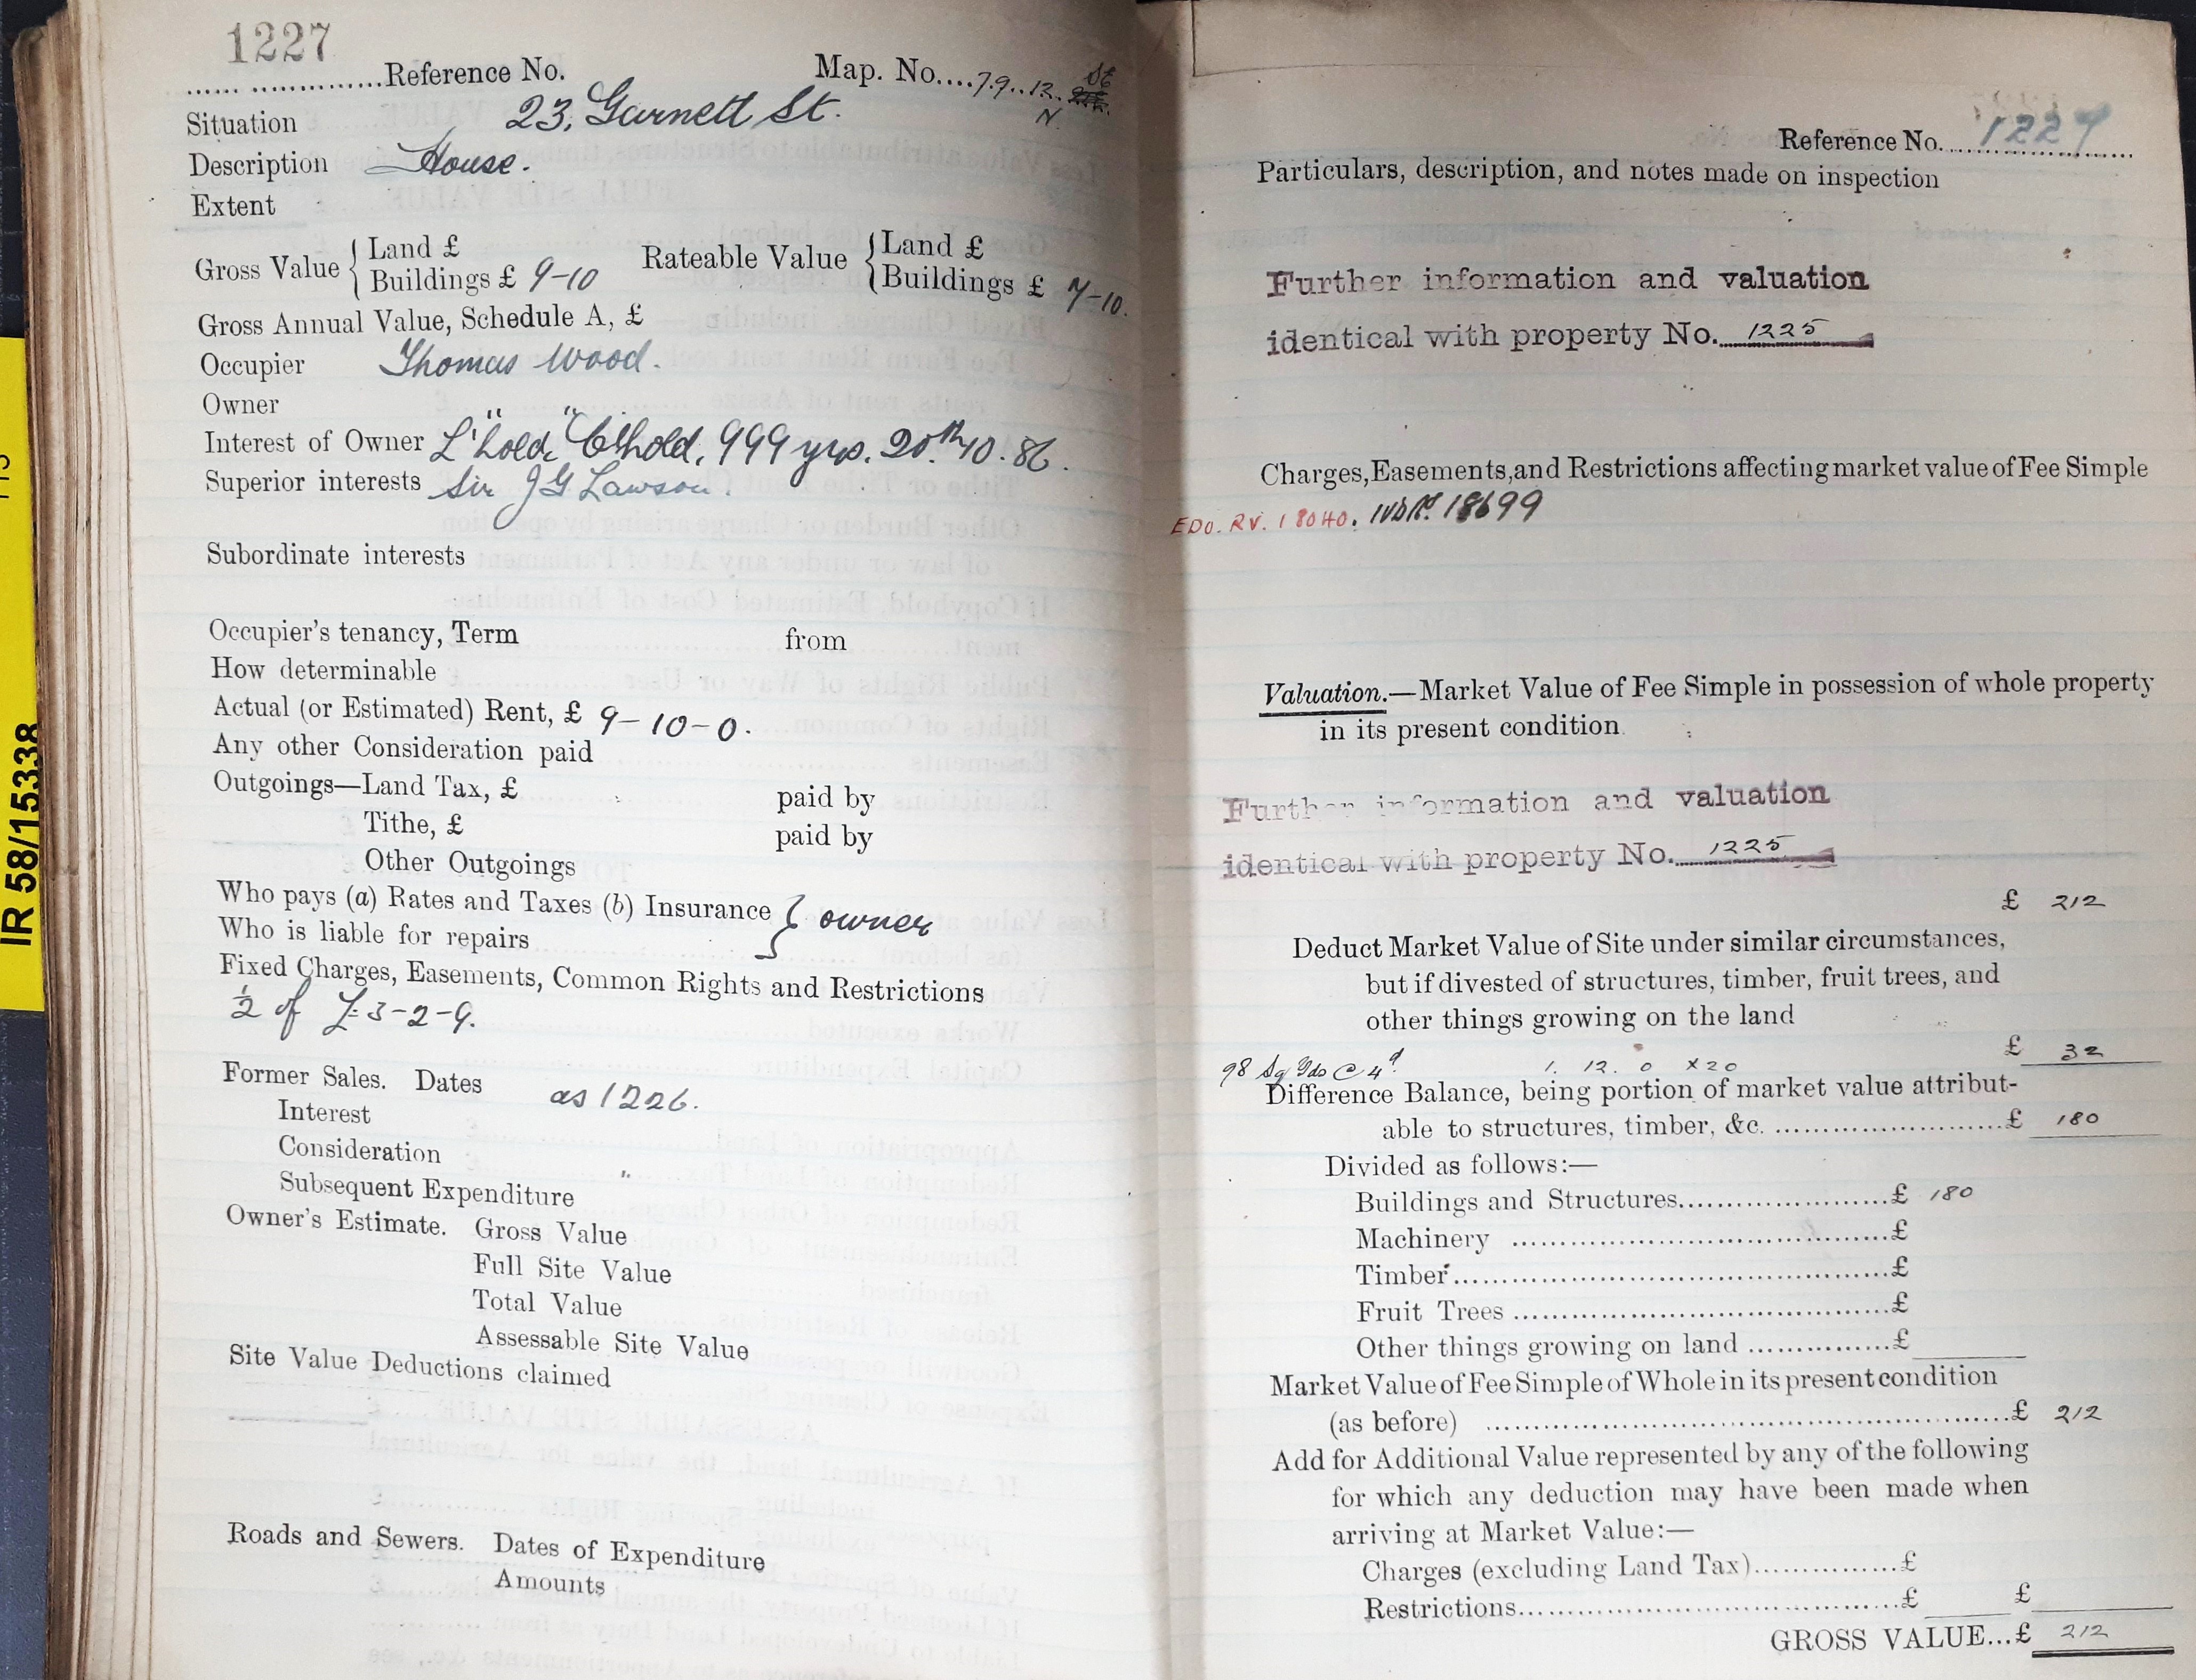 1227
Reference No. Map. No....79..12. St
N
Situation 23, Garnett St.
Description House.
Extent
Gross Value { Land £ Rateable Value { Land £
Buildings £ 9-10 Buildings £ 7-10.
Gross Annual Value, Schedule A, £
Occupier Thomas Wood.
Owner " "
Interest of Owner L'hold, 999 yrs. 20th 10. 86.
Superior interests Sir J G Lawson.
Subordinate interests
Occupier's tenancy, Term from
How determinable
Actual (or Estimated) Rent, £ 9-10-0.
Any other Consideration paid
Outgoings—Land Tax, £ paid by
Tithe, £ paid by
Other Outgoings
Who pays (a) Rates and Taxes (b) Insurance } owner
Who is liable for repairs
Fixed Charges, Easements, Common Rights and Restrictions
½ of £3-2-9.
Former Sales. Dates as 1226.
Interest
Consideration
Subsequent Expenditure "
Owner's Estimate. Gross Value
Full Site Value
Total Value
Assessable Site Value
Site Value Deductions claimed
Roads and Sewers. Dates of Expenditure
Amounts
IR 58/15338
Reference No. 1227
Particulars, description, and notes made on inspection
Further information and valuation
identical with property No. 1225
Charges, Easements, and Restrictions affecting market value of Fee Simple
EDO. RV. 18040. 18699
Valuation.—Market Value of Fee Simple in possession of whole property
in its present condition
Further information and valuation
identical with property No. 1225
£ 212
Deduct Market Value of Site under similar circumstances,
but if divested of structures, timber, fruit trees, and
other things growing on the land
£ 32
98 Sq Yds @ 4d. 1. 12. 0 x20
Difference Balance, being portion of market value attribut-
able to structures, timber, &c. ........................£ 180
Divided as follows:—
Buildings and Structures......................£ 180
Machinery ........................................£
Timber..............................................£
Fruit Trees ........................................£
Other things growing on land ...............£
Market Value of Fee Simple of Whole in its present condition
(as before) ........................................................£ 212
Add for Additional Value represented by any of the following
for which any deduction may have been made when
arriving at Market Value:—
Charges (excluding Land Tax)...............£
Restrictions........................................£ £
GROSS VALUE...£ 212